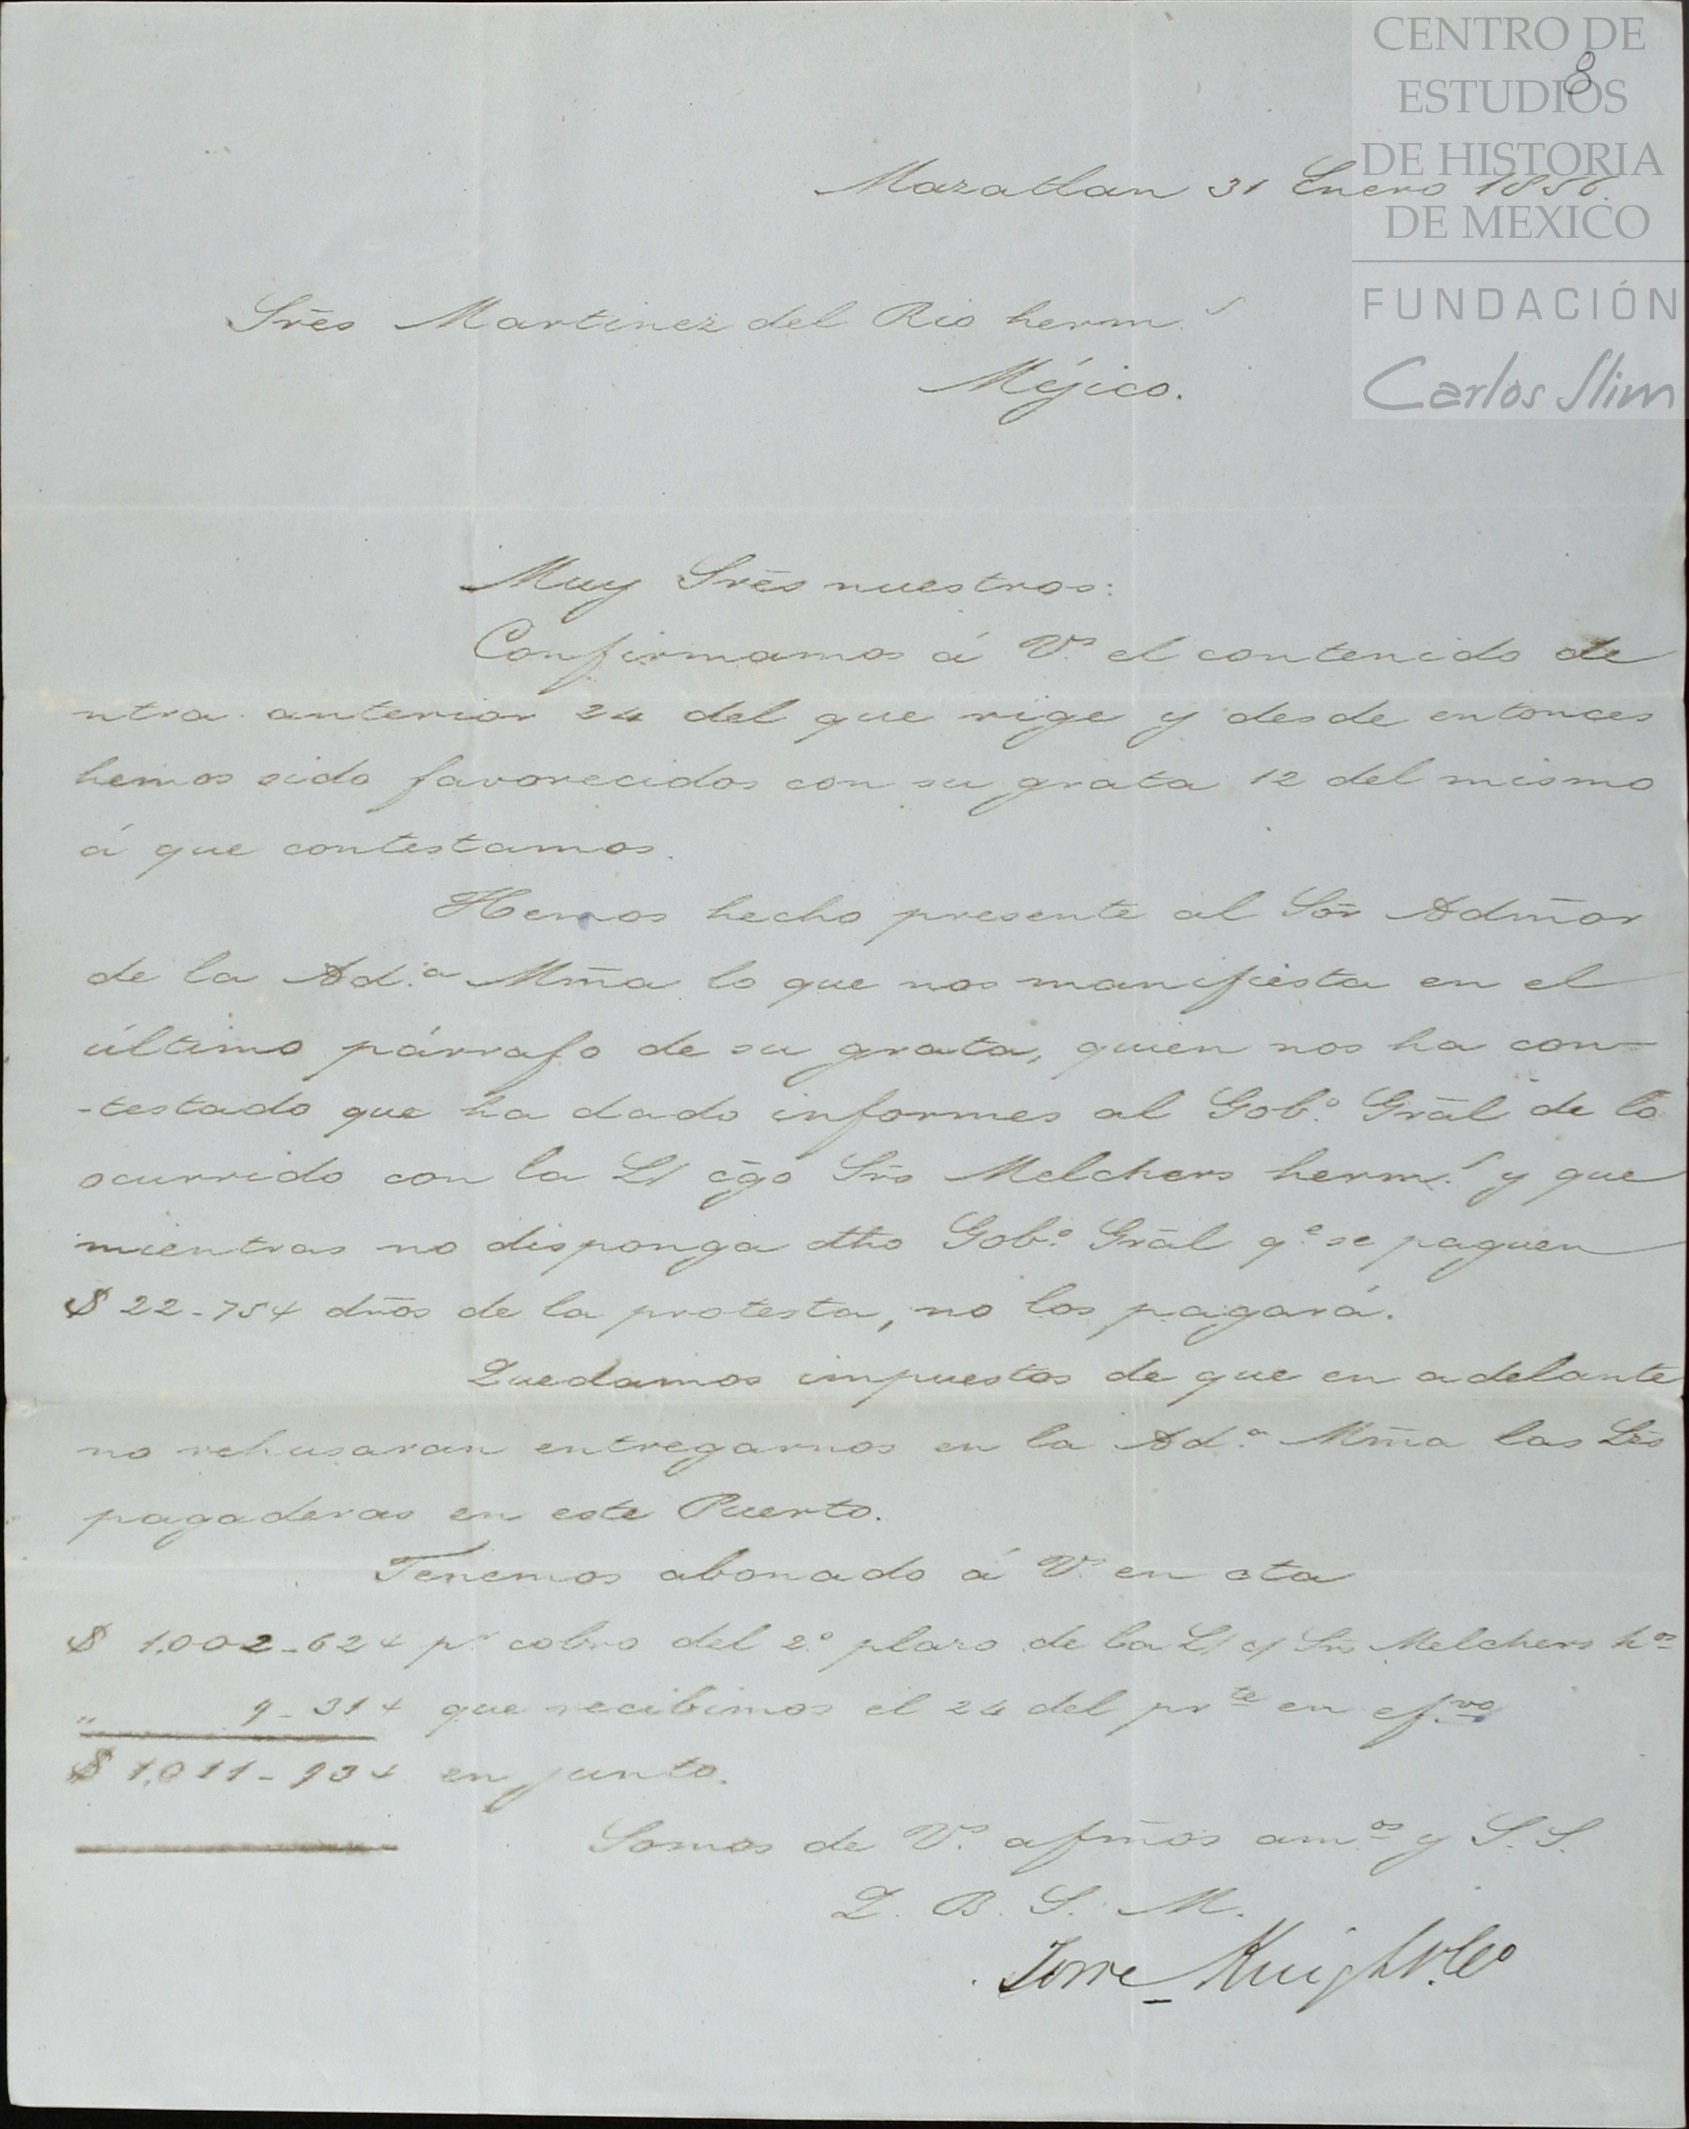 CENTRO DE
ESTUDIOS
DE HISTORIA
DE MEXICO
FUNDACIÓN
Carlos Slim
8
Mazatlan 31 Enero 1856.
Srēs Martinez del Rio herm.s
Méjico.
Muy Srēs nuestros:
Confirmamos á V.s el contenido de
ntra. anterior 24 del que rige y desde entonces
hemos sido favorecidos con su grata 12 del mismo
á que contestamos.
Hemos hecho presente al Sōr Admōr
de la Ad.a Mm̄a lo que nos manifiesta en el
último párrafo de su grata, quien nos ha con-
-testado que ha dado informes al Gob.o Grāl de lo
ocurrido con la L/ cḡo Srs Melchers herm.s y que
mientras no disponga dho Gob.o Grāl q.e se paguen
$ 22-75 4 dr̄os de la protesta, no los pagará.
Quedamos impuestos de que en adelante
no rehusaran entregarnos en la Ad.a Mm̄a las Lēs
pagaderas en este Puerto.
Tenemos abonado á V.s en cta
$ 1.002-62 4 p.r cobro del 2.o plazo de la L/ c/ Srs Melchers h.os
" 9-31 4 que recibimos el 24 del pr.te en ef.vo
$ 1.011-93 4 en junto.
Somos de V.s afm̄os am.os y S. S.
Q. B. S. M.
Torre Knight & Co